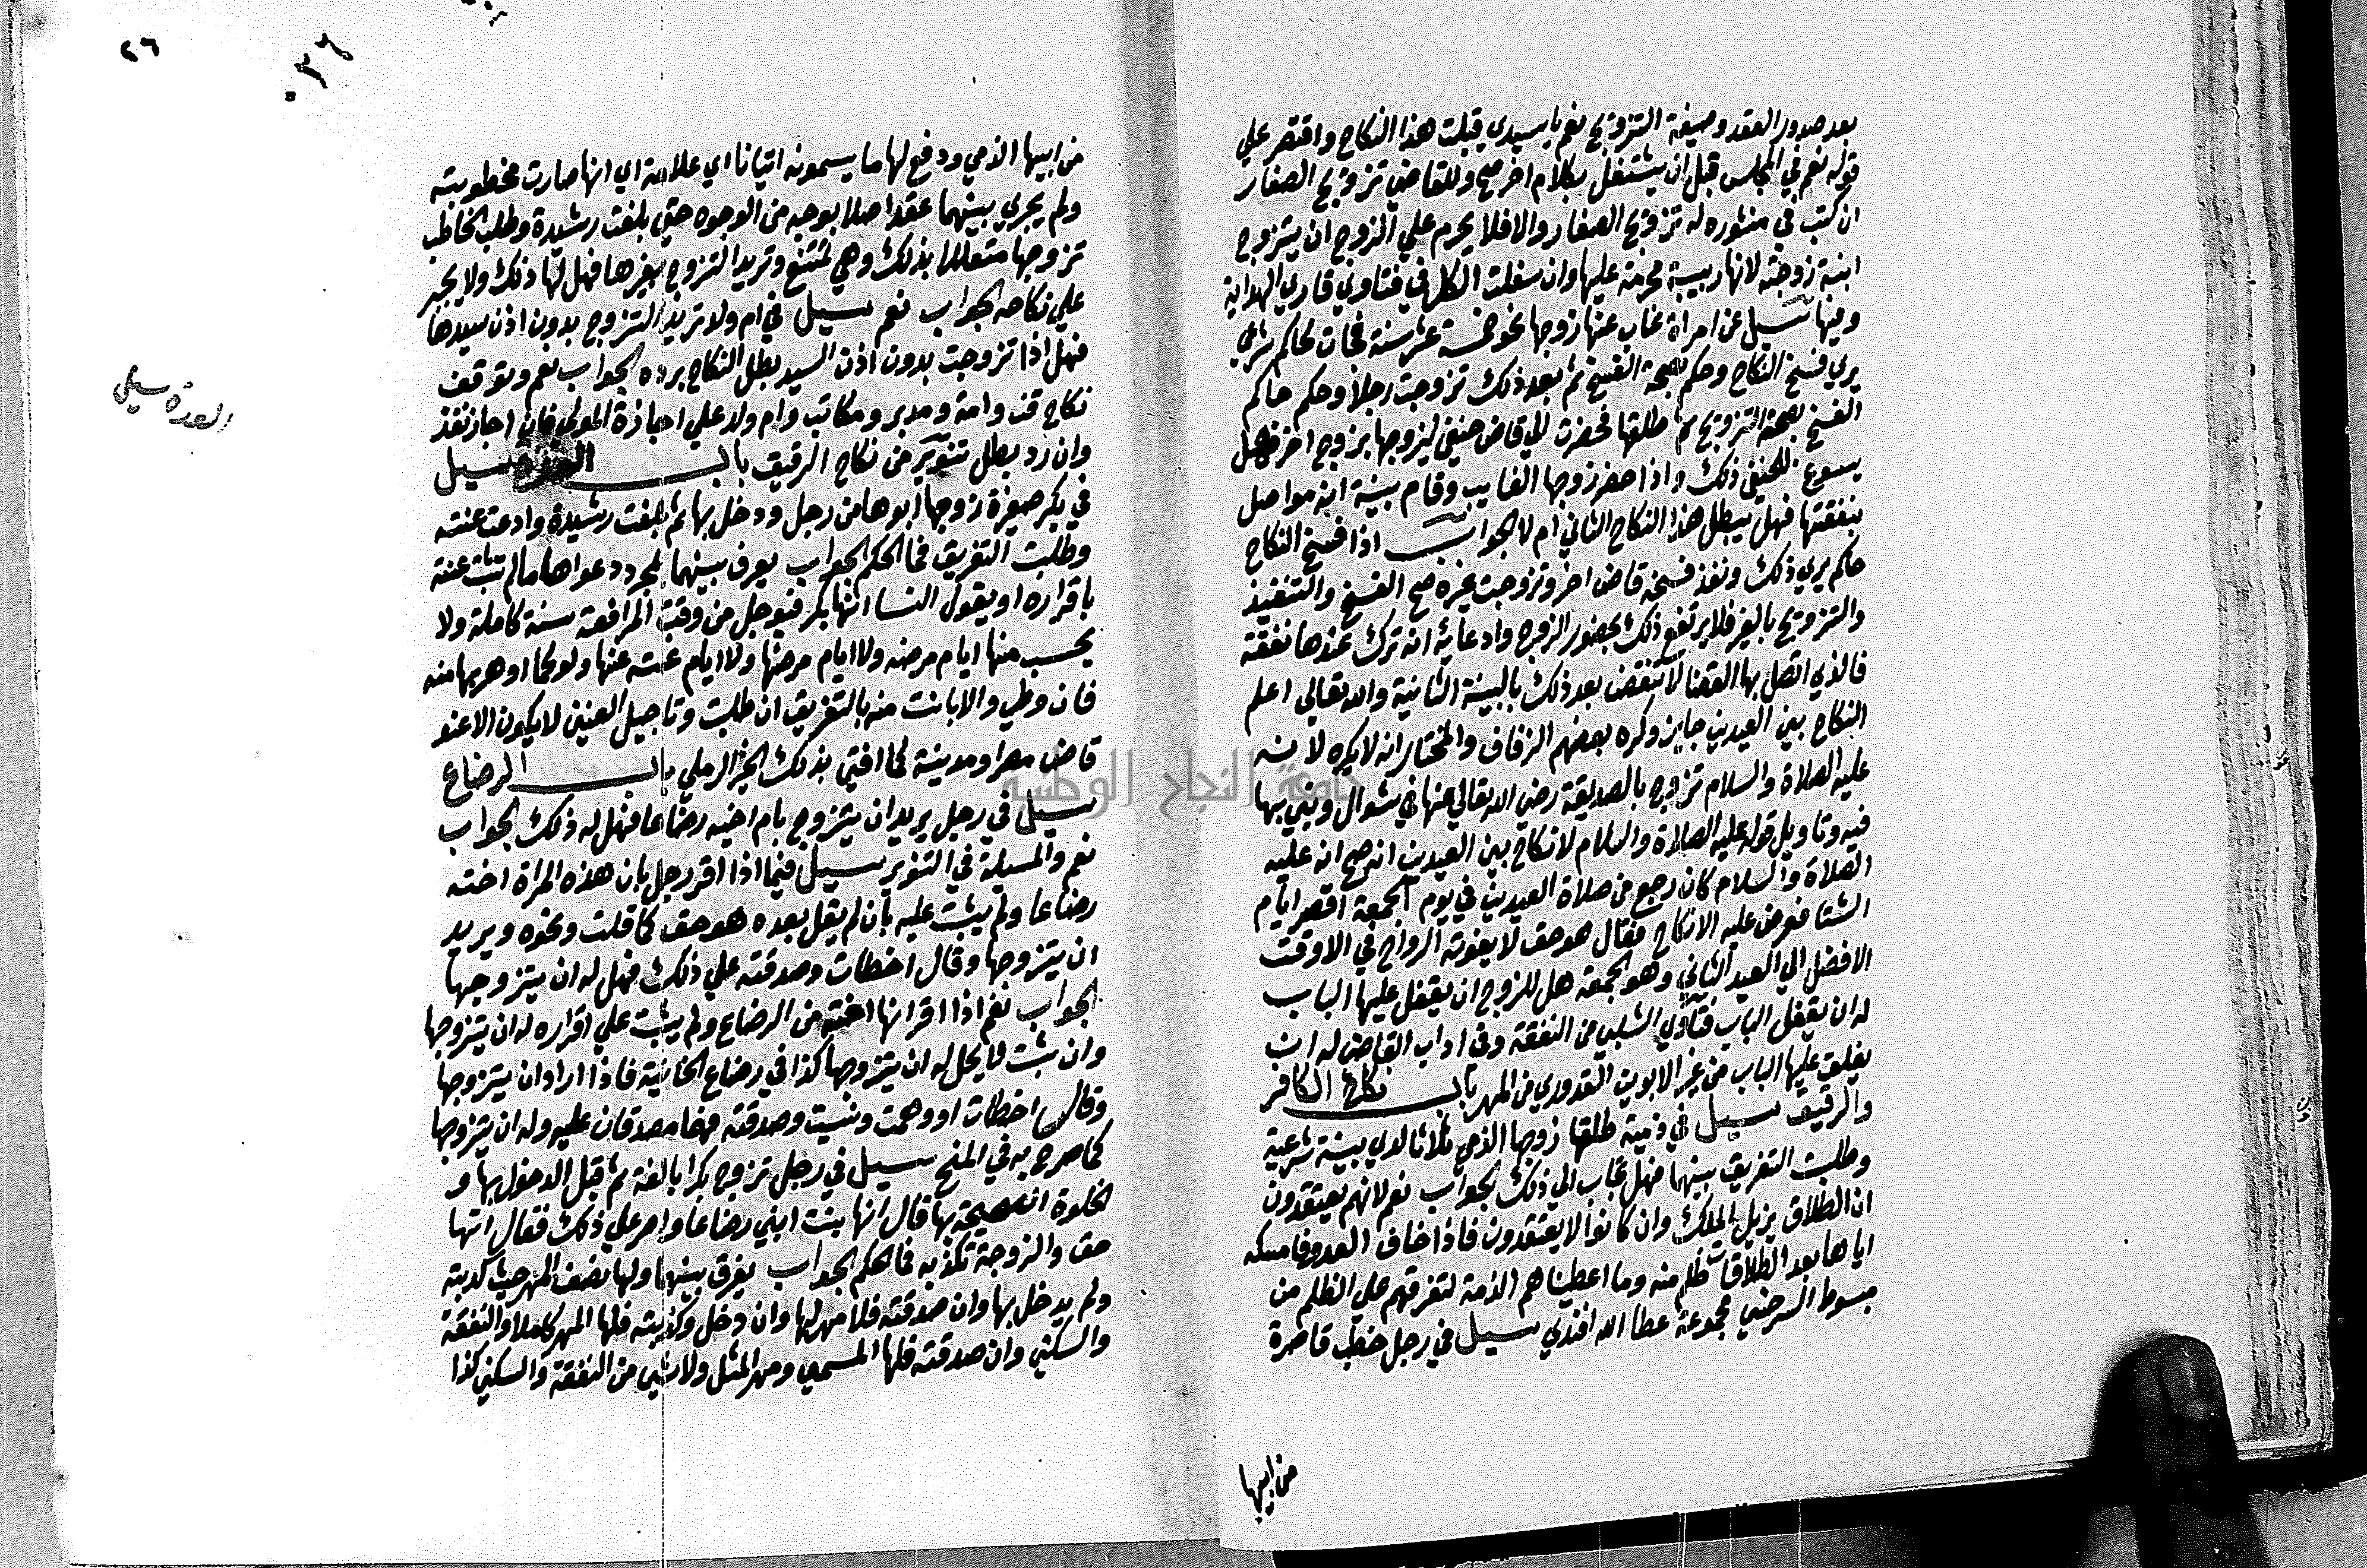 بعد صدور العقد وصيغة التزويج نعم يا سيدي قبلت هذا النكاح واقتصر علي
قوله نعم في المجلس قبل ان يشتغل بكلام اخر صح وللقاضي تزويج الصغار
ان كتب في منشوره له تزويج الصغار والا فلا يحرم علي الزوج ان يتزوج
ابنة زوجته لانها ربيبة محرمة عليها وان سفلت الكل في فتاوي قاري الهداية
وفيها سيل عن امراة غاب عنها زوجها نحو خمسة عشر سنة فجات لحاكم شرعي
يري فسخ النكاح وحكم بصحة الفسخ ثم بعد ذلك تزوجت رجلا وحكم حاكم
الفسخ بصحة التزويج ثم طلقها فحضرت الي قاض حنفي ليزوجها بزوج اخر فهل
يسوغ للحنفي ذلك واذا حضر زوجها الغايب وقام ببينة انه مواصل
بنفقتها فهل يبطل هذا النكاح الثاني ام لا الجواب اذا فسخ النكاح
حاكم يري ذلك ونفذ فسخه قاض اخر وتزوجت غيره صح الفسخ والتنفيذ
والتزويج بالغير فلا يرتفع ذلك بحضور الزوج وادعايه انه ترك عندها نفقة
فالذي اتصل بها القضا لا تنقض بعد ذلك بالبينة الثانية والله تعالي اعلم
النكاح بين العيدين جايز وكره بعضهم الزفاف والمختار انه لا يكره لانه
عليه الصلاة والسلام تزوج بالصديقة رضي الله تعالي عنها في شوال وبني بها
فيه وتاويل قوله عليه الصلاة والسلام لا نكاح بين العيدين انه صح انه عليه
الصلاة والسلام كان رجع من صلاة العيدين في يوم الجمعة اقصر ايام
الشتا فعرض عليه الانكاح فقال هو حق لا يفوته الرواح في الاوقت
الافضل الي العيد الثاني وهو الجمعة هل للزوج ان يقفل عليها الباب
له ان يقفل الباب فتاوي الشلبي من النفقة وفي اداب القاضي له ان
يغلق عليها الباب من غير الابوين القدوري من المهر باب نكاح الكافر
والرقيق سيل في ذمية طلقها زوجها الذمي ثلاثا لدي بينة شرعية
وطلبت التفريق بينهما فهل تجاب الي ذلك الجواب نعم لانهم يعتقدون
ان الطلاق يزيل الملك وان كانوا لا يعتقدون فاذا خاف العدو فامسكه
اياها بعد الطلاقات ظلم منه وما اعطيناهم الذمة لتفرقهم علي الظلم من
مبسوط السرخسي مجموعة عطا الله افندي سيل في رجل خطب قاصرة
من ابيها
٢٦
٠٣٦
من ابيها الذمي ودفع لها ما يسمونه اتيانا اي علامة اي انها صارت مخطوبته
ولم يجري بينهما عقد اصلا بوجه من الوجوه حتي بلغت رشيدة وطلب الخاطب
تزوجها متعللا بذلك وهي تمتنع وتريد التزوج بغيرها فهل لها ذلك ولا يجبر
علي نكاحه الجواب نعم سيل في ام ولد تريد التزوج بدون اذن سيدها
فهل اذا تزوجت بدون اذن السيد بطل النكاح برده الجواب نعم وتوقف
نكاح قن وامة ومدبر ومكاتب وام ولد علي اجازة المولي فان اجاز نفذ
وان رد بطل تنوير من نكاح الرقيق باب العدة سيل
العدة سيل
في بكر صغيرة زوجها ابوها من رجل ودخل بها ثم بلغت رشيدة وادعت عنته
وطلبت التفريق فما الحكم الجواب يعرف بينهما لمجرد دعواها ما لم تثبت عنته
باقراره او يقول النسا انها بكر فيوجل من وقت المرافعة سنة كاملة ولا
يحسب منها ايام مرضه ولا ايام مرضها ولا ايام عنته عنها ولو لحما او هربها منه
فان وطي والا بانت منه بالتفريق ان طلبت وتاجيل العنين لا يكون الا عند
قاضي مصر او مدينة كما افتي بذلك الخير الرملي باب الرضاع
سيل في رجل يريد ان يتزوج بام اخيه رضاعا فهل له ذلك الجواب
نعم والمسيلة في التنوير سيل فيما اذا اقر رجل بان هذه المراة اخته
رضاعا ولم يثبت عليه بان لم يقل بعده هو حق كما قلت ونحوه ويريد
ان يتزوجها وقال اخطات وصدقته علي ذلك فهل له ان يتزوجها
الجواب نعم اذا اقر انها اخته من الرضاع ولم يثبت علي اقراره له ان يتزوجها
وان ثبت لا يحل له ان يتزوجها كذا في رضاع الخانية فاذا اراد ان يتزوجها
وقال اخطات او وهمت ونسيت وصدقته فهما مصدقان عليه وله ان يتزوجها
كما صرح به في المنح سيل في رجل تزوج بكرا بالغة ثم قبل الدخول بها و
الخلوة الصحيحة بها قال انها بنت ابني رضاعا واصر علي ذلك فقال انها
حق والزوجة تكذبه فما الحكم الجواب يفرق بينهما ولها نصف المهر حيث كذبته
ولم يدخل بها وان صدقته فلا مهر لها وان دخل وكذبته فلها المهر كاملا والنفقة
والسكني وان صدقته فلها المسمي ومهر المثل ولا شي من النفقة والسكني كذا
جامعة النجاح الوطنية